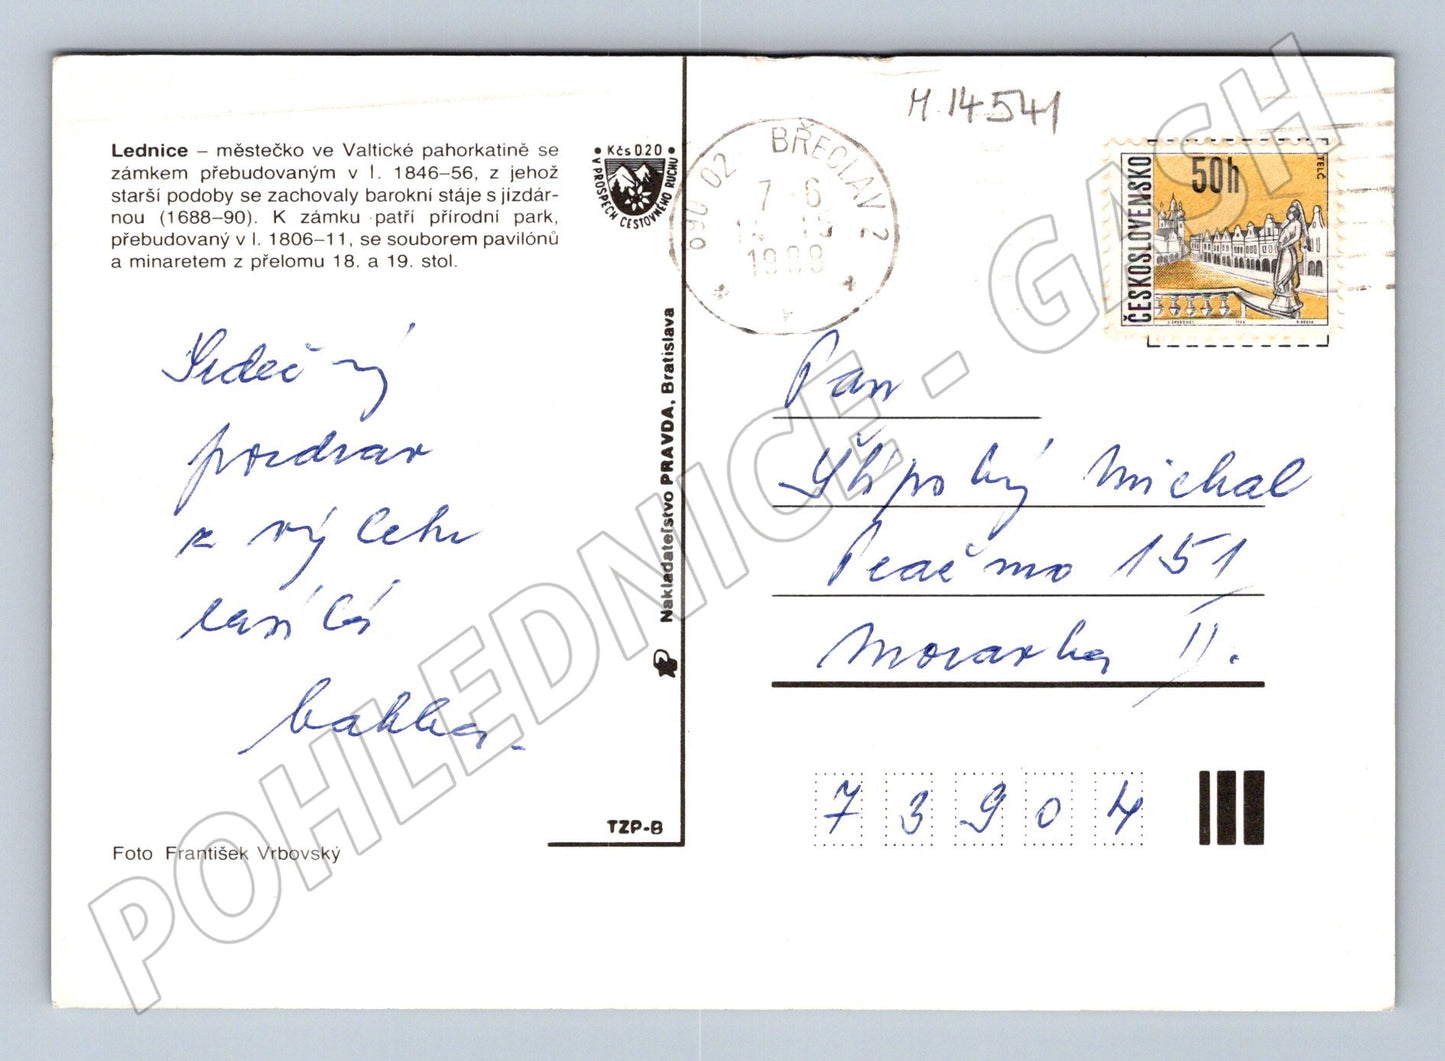 Lednice – městečko ve Valtické pahorkatině se
zámkem přebudovaným v l. 1846–56, z jehož
starší podoby se zachovaly barokní stáje s jízdár-
nou (1688–90). K zámku patří přírodní park,
přebudovaný v l. 1806–11, se souborem pavilónů
a minaretem z přelomu 18. a 19. stol.
• Kčs 0.20 •
V PROSPĚCH CESTOVNÉHO RUCHU
Srdečný
pozdrav
z výletu
zasílá
babka.
Foto František Vrbovský
TZP-8
Nakladateľstvo PRAVDA, Bratislava
690 02 BŘECLAV 2
7-6
1988
M. 14541
ČESKOSLOVENSKO
50h
TELČ
Pan
Michal
Pražmo 151
Morávka II.
73904
POHLEDNICE - GASH